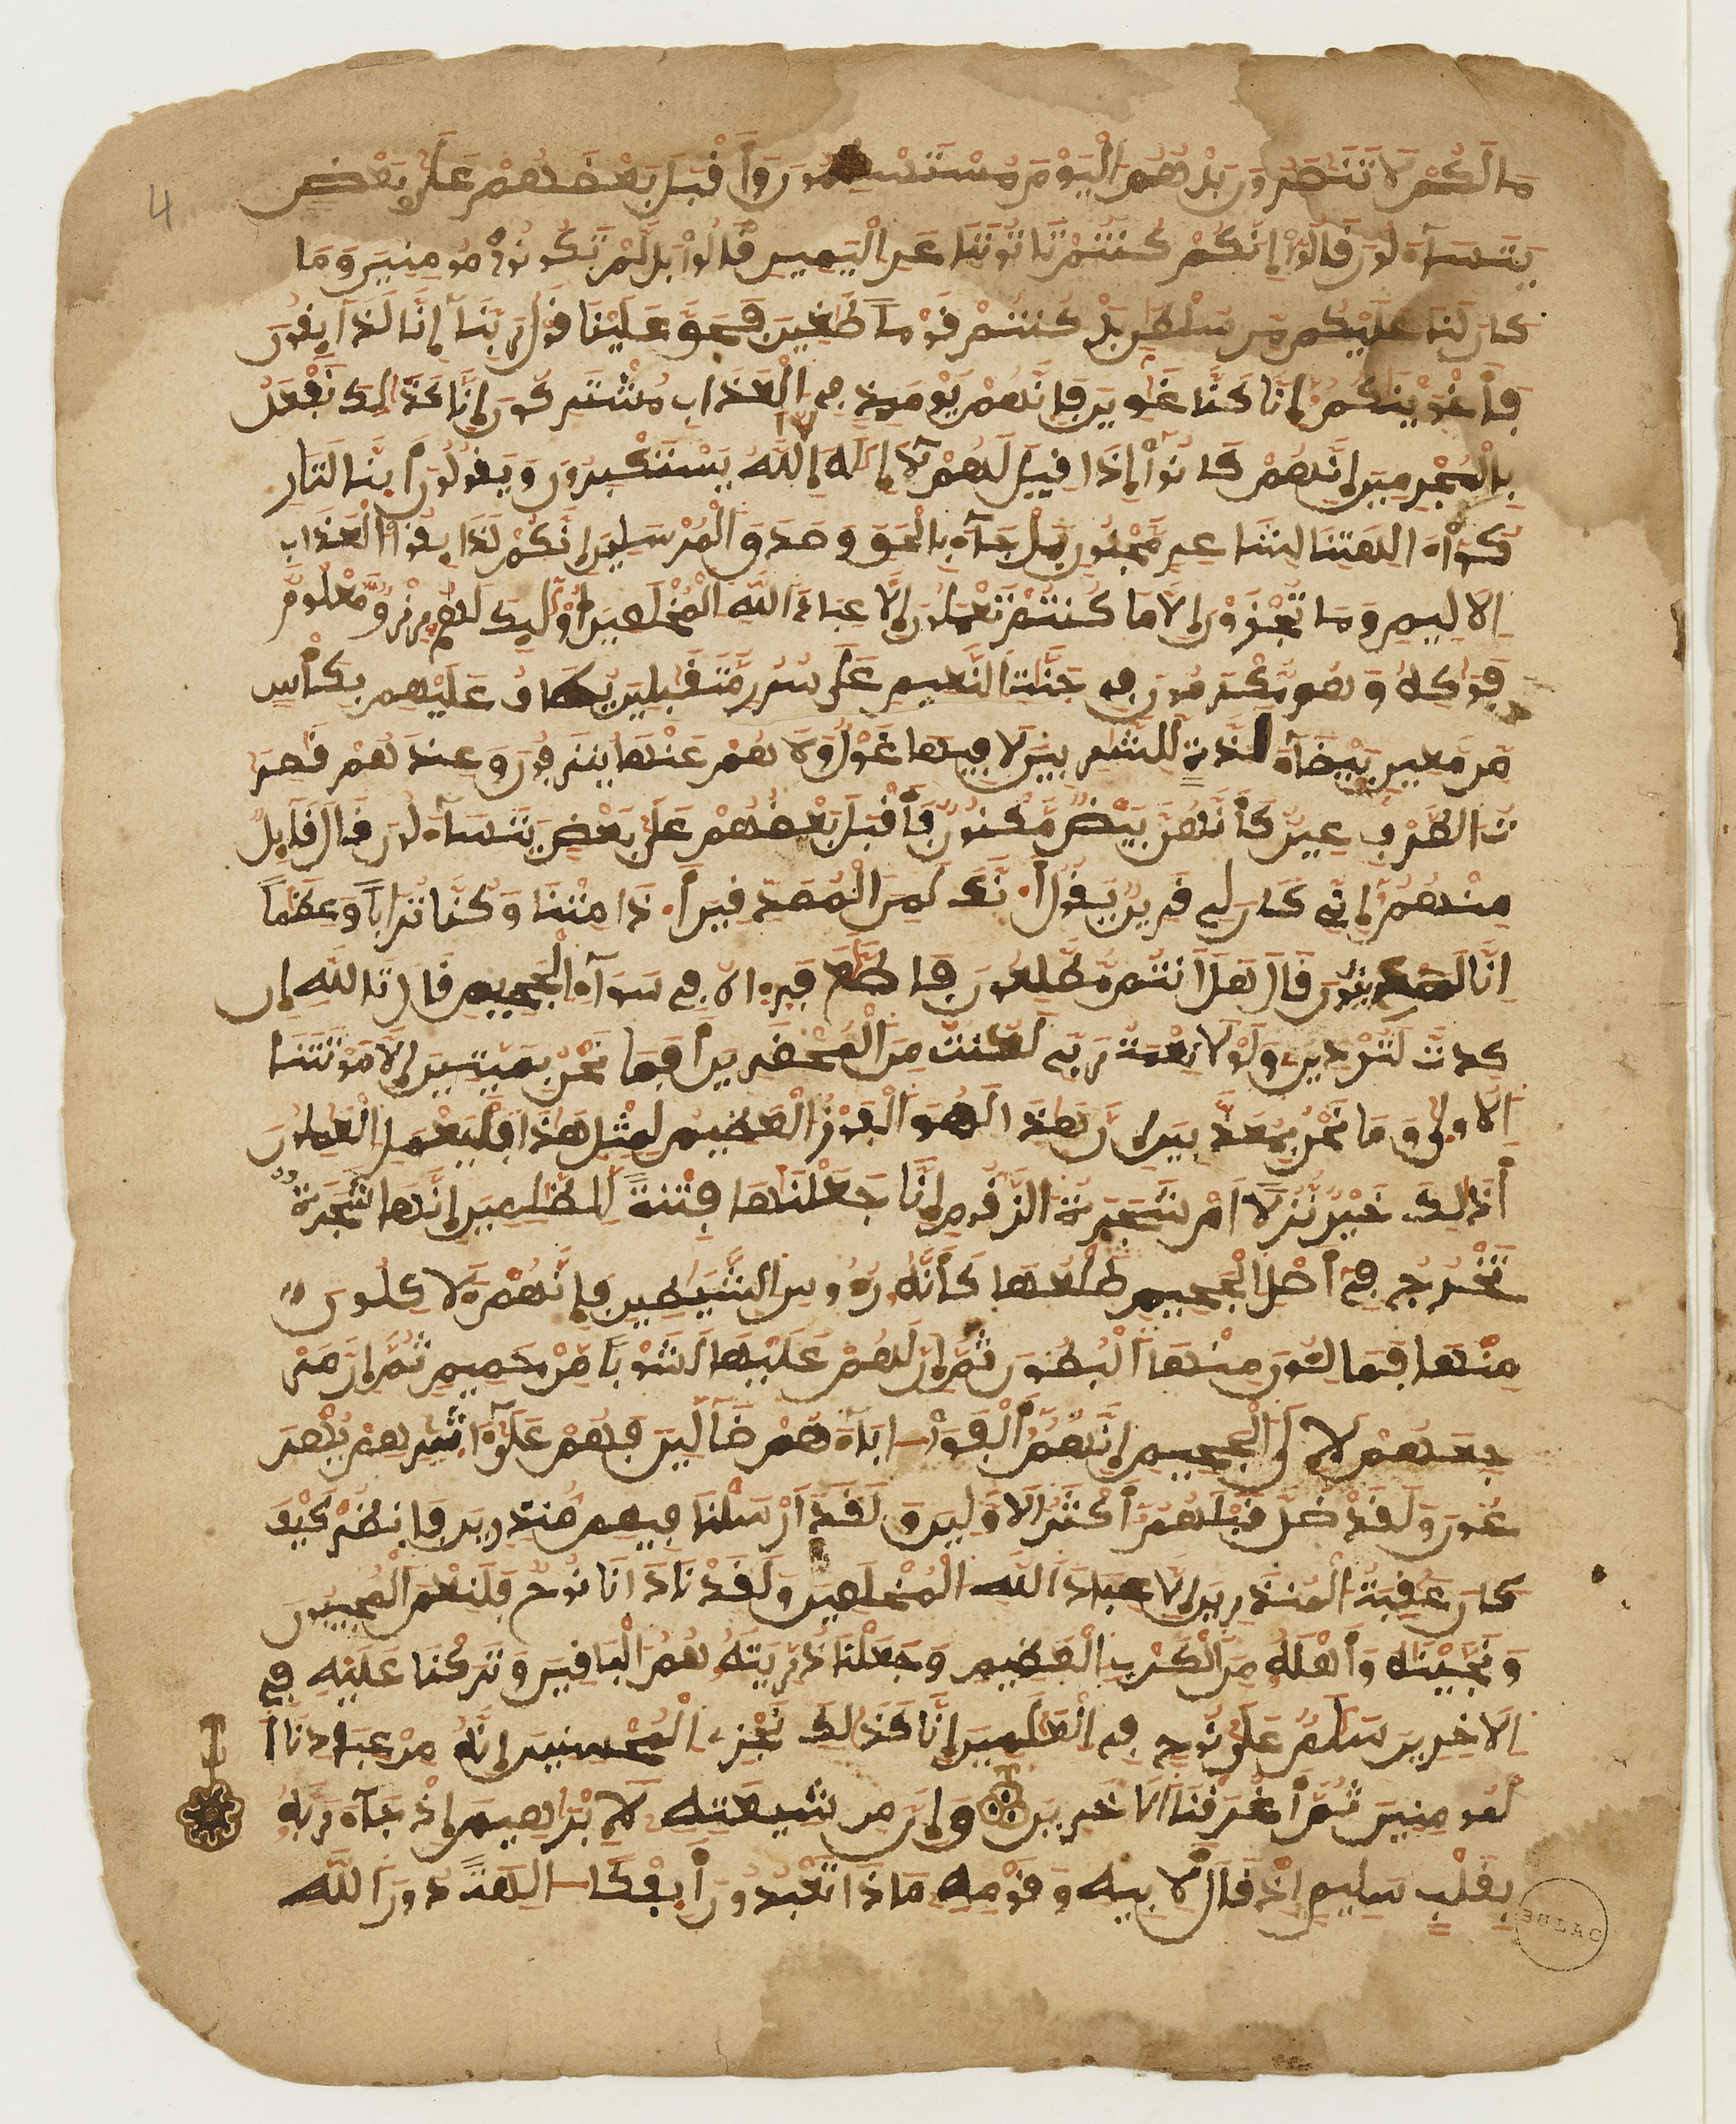 مَا لَكُمْ لَا تَنَٰصَرُونَ بَلْ هُمُ الْيَوْمَ مُسْتَسْلِمُونَ وَأَقْبَلَ بَعْضُهُمْ عَلَىٰ بَعْضٍ
يَتَسَآءَلُونَ قَالُوٓاْ إِنَّكُمْ كُنتُمْ تَاتُونَنَا عَنِ الْيَمِينِ قَالُواْ بَل لَّمْ تَكُونُواْ مُومِنِينَ وَمَا
كَانَ لَنَا عَلَيْكُم مِّن سُلْطَٰنٍ بَلْ كُنتُمْ قَوْماً طَٰغِينَ فَحَقَّ عَلَيْنَا قَوْلُ رَبِّنَآ إِنَّا لَذَآيِقُونَ
فَأَغْوَيْنَٰكُمُۥٓ إِنَّا كُنَّا غَٰوِينَ فَإِنَّهُمْ يَوْمَيِذٍ فِي الْعَذَابِ مُشْتَرِكُونَ إِنَّا كَذَٰلِكَ نَفْعَلُ
بِالْمُجْرِمِينَ إِنَّهُمْ كَانُوٓاْ إِذَا قِيلَ لَهُمْ لَآ إِلَٰهَ إِلَّا اللَّهُ يَسْتَكْبِرُونَ وَيَقُولُونَ أَينَّا لَتَارِ
كُوٓاْ ءَالِهَتِنَا لِشَاعِرٍ مَّجْنُونٍ بَلْ جَآءَ بِالْحَقِّ وَصَدَّقَ الْمُرْسَلِينَ إِنَّكُمْ لَذَآيِقُواْ الْعَذَابِ
الَالِيمِ وَمَا تُجْزَوْنَ إِلَّا مَا كُنتُمْ تَعْمَلُونَ إِلَّا عِبَادَ اللَّهِ الْمُخْلَصِينَ أُوْلَٰٓيِكَ لَهُمْ رِزْقٌ مَّعْلُومٌ
فَوَٰكِهُ وَهُم مُّكْرَمُونَ فِي جَنَّٰتِ النَّعِيمِ عَلَىٰ سُرُرٍ مُّتَقَٰبِلِينَ يُطَافُ عَلَيْهِم بِكَأْسٍ
مِّن مَّعِينٍ بَيْضَآءَ لَذَّةٍ لِّلشَّٰرِبِينَ لَا فِيهَا غَوْلٌ وَلَا هُمْ عَنْهَا يُنزَفُونَ وَعِندَهُمْ قَٰصِرَٰ
تُ الطَّرْفِ عِينٌ كَأَنَّهُنَّ بَيْضٌ مَّكْنُونٌ فَأَقْبَلَ بَعْضُهُمْ عَلَىٰ بَعْضٍ يَتَسَآءَلُونَ قَالَ قَآيِلٌ
مِّنْهُمُۥٓ إِنِّي كَانَ لِي قَرِينٌ يَقُولُ أَ۟نَّكَ لَمِنَ الْمُصَدِّقِينَ أَ۟ذَا مِتْنَا وَكُنَّا تُرَاباً وَعِظَٰماً
اِنَّا لَمَدِينُونَ قَالَ هَلَ اَنتُم مُّطَّلِعُونَ فَاطَّلَعَ فَرِءَاهُ فِي سَوَآءِ الْجَحِيمِ قَالَ تَاللَّهِ إِن
كِدتَّ لَتُرْدِينِ وَلَوْلَا نِعْمَةُ رَبِّي لَكُنتُ مِنَ الْمُحْضَرِينَ أَفَمَا نَحْنُ بِمَيِّتِينَ إِلَّا مَوْتَتَنَا
الُاولَىٰ وَمَا نَحْنُ بِمُعَذَّبِينَ إِنَّ هَٰذَا لَهُوَ الْفَوْزُ الْعَظِيمُ لِمِثْلِ هَٰذَا فَلْيَعْمَلِ الْعَٰمِلُونَ
أَذَٰلِكَ خَيْرٌ نُّزُلاً اَمْ شَجَرَةُ الزَّقُّومِ إِنَّا جَعَلْنَٰهَا فِتْنَةً لِّلظَّٰلِمِينَ إِنَّهَا شَجَرَةٌ
تَخْرُجُ فِيٓ أَصْلِ الْجَحِيمِ طَلْعُهَا كَأَنَّهُۥ رُءُوسُ الشَّيَٰطِينِ فَإِنَّهُمْ لَأَكِلُونَ
مِنْهَا فَمَالِـُٔونَ مِنْهَا الْبُطُونَ ثُمَّ إِنَّ لَهُمْ عَلَيْهَا لَشَوْباً مِّنْ حَمِيمٍ ثُمَّ إِنَّ مَرْ
جِعَهُمْ لَإِلَى الْجَحِيمِ إِنَّهُمُۥٓ أَلْفَوَاْ ابَآءَهُمْ ضَآلِّينَ فَهُمْ عَلَىٰٓ ءَاثَٰرِهِمْ يُهْرَ
عُونَ وَلَقَد ضَّلَّ قَبْلَهُمُۥٓ أَكْثَرُ الَاوَّلِينَ وَلَقَدَ اَرْسَلْنَا فِيهِم مُّنذِرِينَ فَانظُرْ كَيْفَ
كَانَ عَٰقِبَةُ الْمُنذَرِينَ إِلَّا عِبَادَ اللَّهِ الْمُخْلَصِينَ وَلَقَدْ نَادَىٰنَا نُوحٌ فَلَنِعْمَ الْمُجِيبُونَ
وَنَجَّيْنَٰهُ وَأَهْلَهُۥ مِنَ الْكَرْبِ الْعَظِيمِ وَجَعَلْنَا ذُرِّيَّتَهُۥ هُمُ الْبَاقِينَ وَتَرَكْنَا عَلَيْهِ فِي
الَاخِرِينَ سَلَٰمٌ عَلَىٰ نُوحٍ فِي الْعَٰلَمِينَ إِنَّا كَذَٰلِكَ نَجْزِي الْمُحْسِنِينَ إِنَّهُۥ مِنْ عِبَادِنَا ا
لْمُومِنِينَ ثُمَّ أَغْرَقْنَا الَاخَرِينَ وَإِنَّ مِن شِيعَتِهِ لَإِبْرَٰهِيمَ إِذْ جَآءَ رَبَّهُۥ
بِقَلْبٍ سَلِيمٍ اِذْ قَالَ لِأَبِيهِ وَقَوْمِهِ مَاذَا تَعْبُدُونَ أَيِفْكاً ـالِهَةً دُونَ اللَّهِ